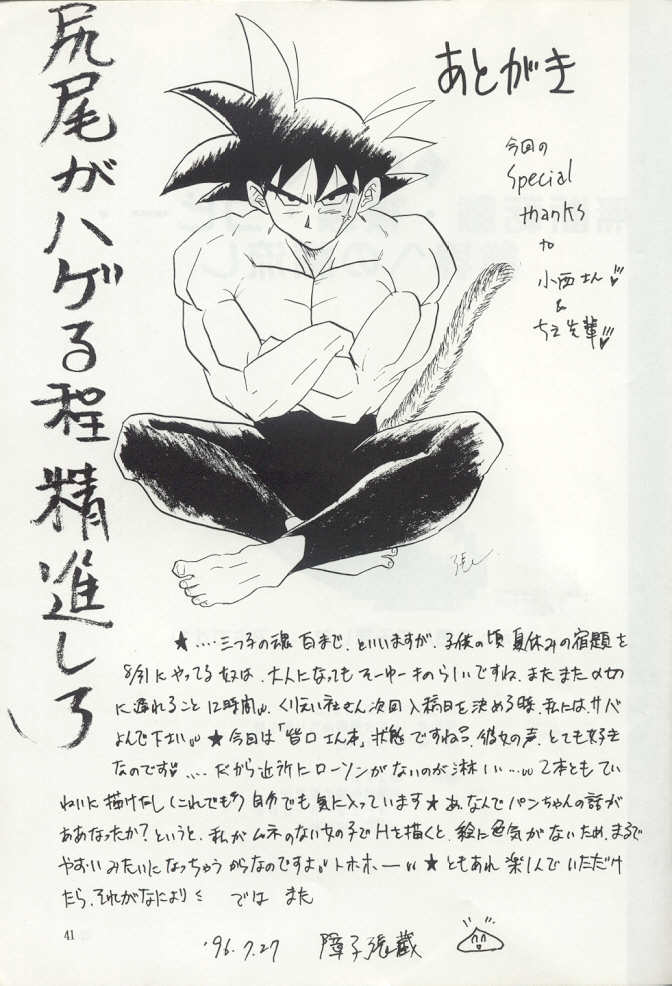 尻尾がハゲる程精進しろ
あとがき
今回の
Special
thanks
to
小西さん
&
先輩
★‥‥三つ子の魂百まで、といいますが、子供の頃夏休みの宿題を
8/31にやってる奴は、大人になってもそーゆーものらしいですね。またまた〆切
に遅れること12時間。くりえい社さん次回入稿日を決める時、私にはサバ
よんで下さい。★今回は「皆口さん本」状態ですね。彼女の声、とても好き
なのです。‥‥だから近所にローソンがないのが淋しい‥‥。2本ともてい
ねいに描けたし(これでも)自分でも気に入っています★あ、なんでパンちゃんの話が
ああなったか?というと、私がムネのない女の子でHを描くと、絵に色気がないため、まるで
やすいみたいになっちゃうからなのですよ。トホホー★ともあれ楽しんでいただけ
たら、それがなにより では また
41
'96.7.27 障子張蔵